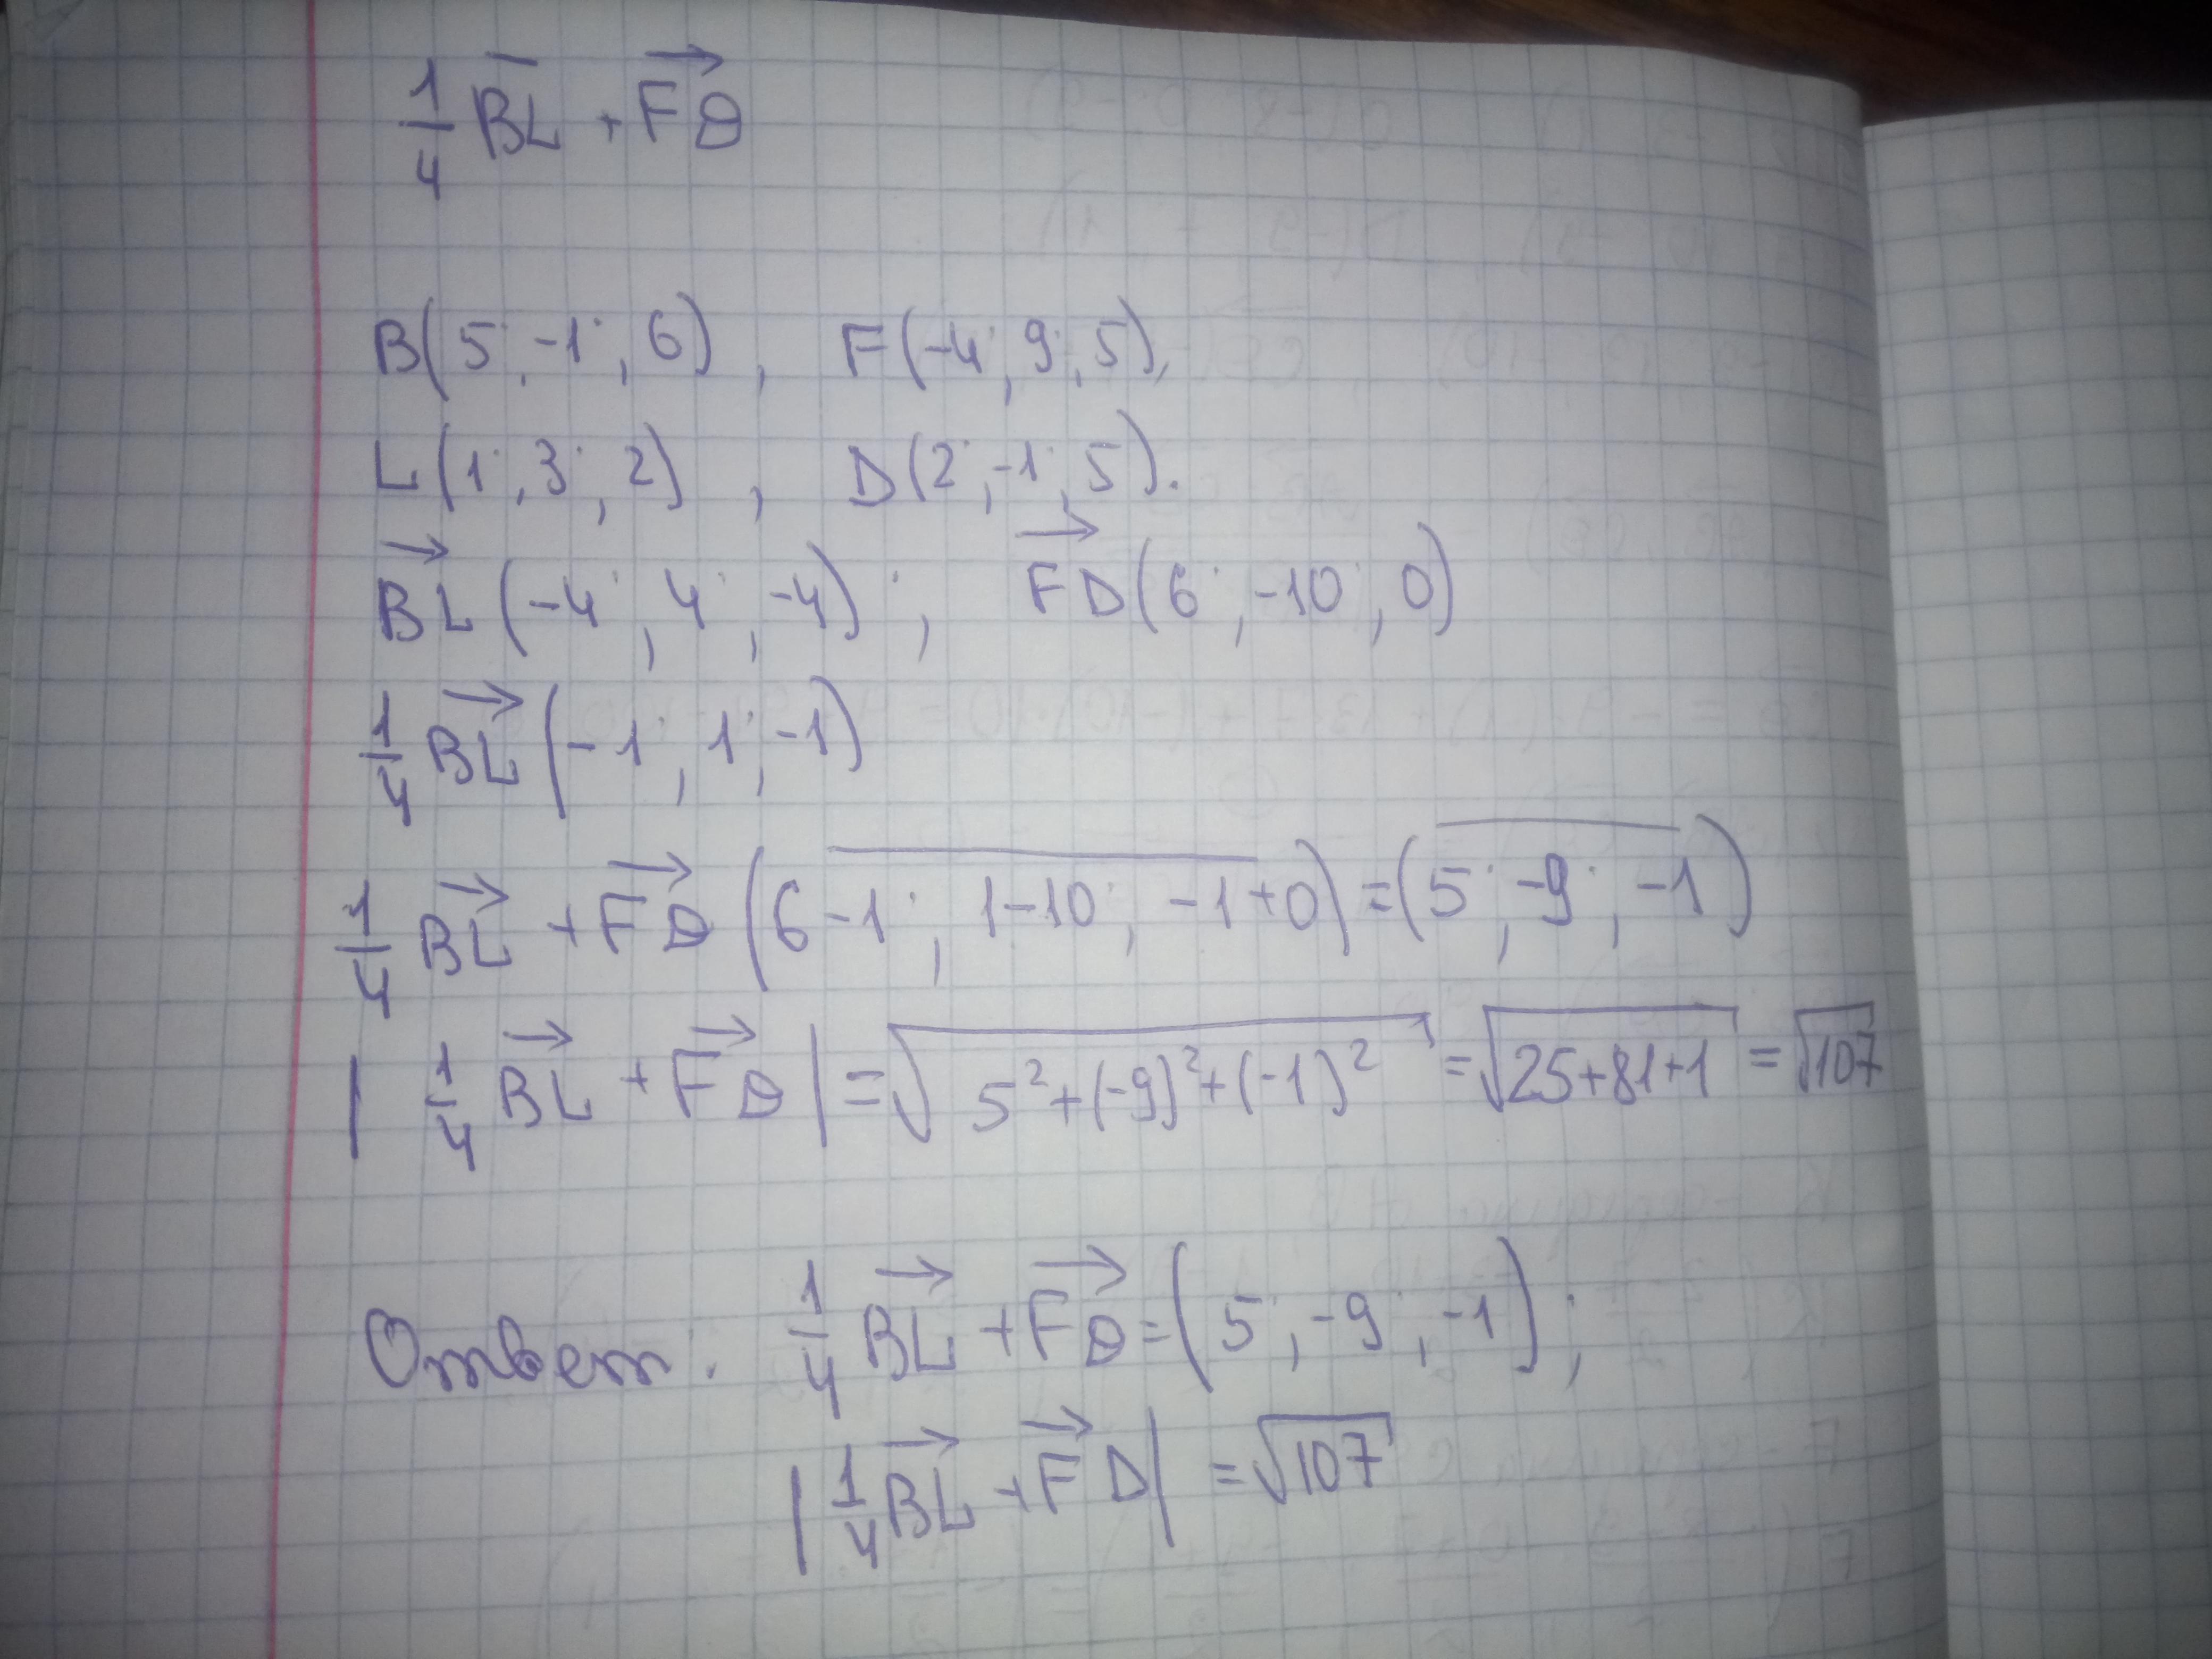 1/4 BL + FD
B(5; -1; 6), F(-4; 9; 5),
L(1; 3; 2), D(2; -1; 5).
BL(-4; 4; -4); FD(6; -10; 0)
1/4 BL(-1; 1; -1)
1/4 BL + FD (6-1; 1-10; -1+0) = (5; -9; -1)
| 1/4 BL + FD | = √(5² + (-9)² + (-1)²) = √(25+81+1) = √107
Ответ: 1/4 BL + FD = (5; -9; -1);
| 1/4 BL + FD | = √107